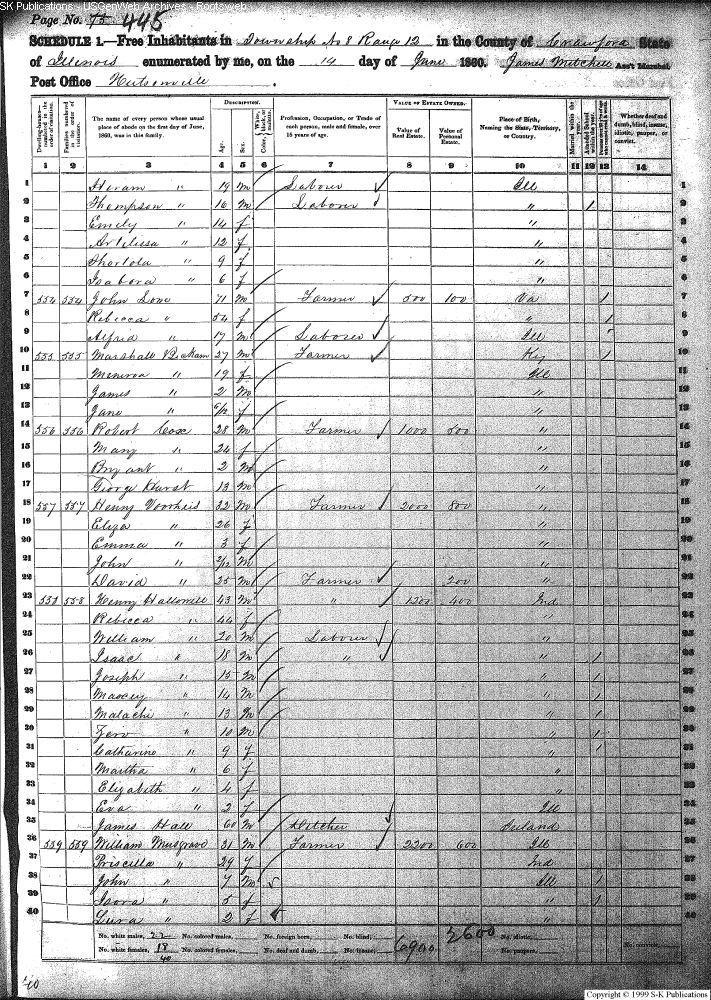 SK Publications - USGenWeb Archives - Rootsweb
Page No. 75 445
SCHEDULE 1.—Free Inhabitants in Township No 8 Range 12 in the County of Crawford State
of Illinois enumerated by me, on the 14 day of June 1860. James Mitchell Ass't Marshal.
Post Office Hutsonville
Dwelling-houses—numbered in the order of visitation.
Families numbered in the order of visitation.
The name of every person whose usual place of abode on the first day of June, 1860, was in this family.
DESCRIPTION.
Age.
Sex.
Color, White, black, or mulatto.
Profession, Occupation, or Trade of each person, male and female, over 15 years of age.
VALUE OF ESTATE OWNED.
Value of Real Estate.
Value of Personal Estate.
Place of Birth, Naming the State, Territory, or Country.
Married within the year.
Attended School within the year.
Whether deaf and dumb, blind, insane, idiotic, pauper, or convict.
1 2 3 4 5 6 7 8 9 10 11 12 13 14
1 Hiram " 19 m Laborer Ill 1
2 Thompson " 16 m Laborer " 1 2
3 Emily " 14 f " 3
4 Artelissa " 12 f " 4
5 " 9 f " 5
6 Isabora " 6 f " 6
7 554 554 John Lowe 71 m Farmer 500 100 Va 1 7
8 Rebecca " 54 f " 1 8
9 Alfred " 17 m Laborer Ill 9
10 555 555 Marshall 27 m Farmer Ky 1 10
11 Minerva " 19 f Ill 11
12 James " 2 m " 12
13 Jane " /12 f " 13
14 556 556 Robert Cox 28 m Farmer 1000 500 " 14
15 Mary " 24 f " 15
16 Bryant " 2 m " 16
17 George Hurst 13 m " 17
18 557 557 Henry Voorheis 32 m Farmer 2000 800 " 18
19 Eliza " 26 f " 19
20 Emma " 3 f " 20
21 John " /12 m " 21
22 David " 25 m Farmer 200 " 22
23 558 558 Henry Hallowell 43 m " 1200 400 Ind 23
24 Rebecca " 44 f " 24
25 William " 20 m Laborer " 25
26 Isaac " 18 m " " 1 26
27 Joseph " 15 m " 1 27
28 Maxey " 14 m " 1 28
29 Malachi " 13 m " 1 29
30 Zero " 10 m " 1 30
31 Catharine " 9 f " 1 31
32 Martha " 6 f " 32
33 Elizabeth " 4 f " 33
34 Eva " 2 f Ill 34
35 James Hall 60 m Ditcher Ireland 35
36 559 559 William Musgrave 31 m Farmer 2200 600 Ill 36
37 Priscilla " 29 f Ind 37
38 John " 7 m Ill 1 38
39 " 5 f " 1 39
40 Lura " 2 f " 40
No. white males, 22 No. colored males, No. foreign born, No. blind, 6900 2600 No. idiotic,
No. white females, 18 No. colored females, No. deaf and dumb, No. insane, No. paupers, No. convicts,
40
Copyright © 1999 S-K Publications